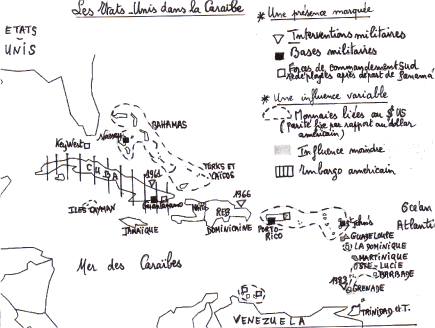 Les Etats-Unis dans la Caraïbe
* Une présence marquée
Interventions militaires
Bases militaires
Forces de commandement Sud
redéployées après départ de Panamá
* Une influence variable
Monnaies liées au $ US
(parité fixe par rapport au dollar
américain)
Influence moindre
Embargo américain
ETATS
UNIS
BAHAMAS
Nassau
Key West
CUBA
TURKS ET
CAÏCOS
1961
Guantanamo
ILES CAYMAN
JAMAÏQUE
HAITI
REP
DOMINICAINE
1966
PORTO-
RICO
Océan
Atlanti
St John's
GUADELOUPE
LA DOMINIQUE
MARTINIQUE
STE LUCIE
BARBADE
1983
GRENADE
Mer des Caraïbes
TRINIDAD et T.
VENEZUELA